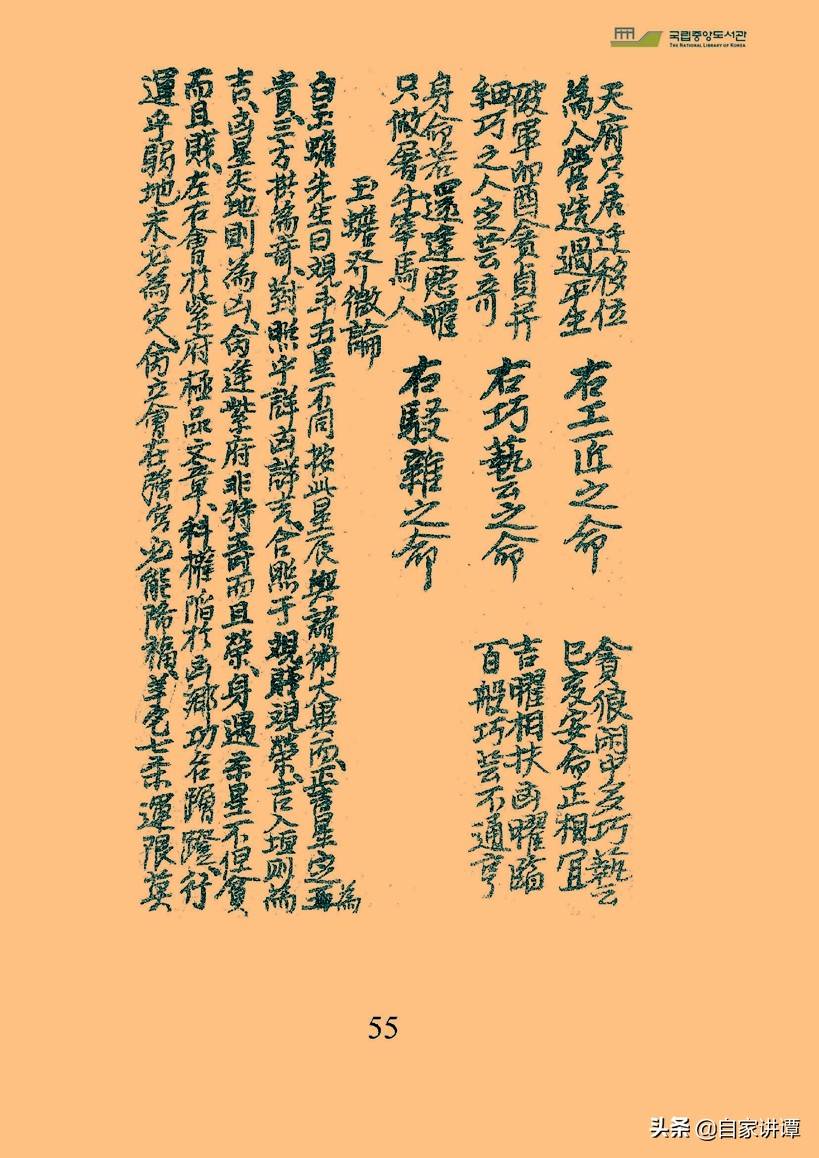 국립중앙도서관
THE NATIONAL LIBRARY OF KOREA
天府只居迁移位
為人營造過平生
右工匠之命
貪狼閑中多巧藝
巳亥安命正相宜
破軍卯酉貪貞幷
細巧之人定芸奇
右巧藝云之命
吉曜相扶凶曜臨
百般巧芸不通亨
身命若還逢惡曜
只做屠牛宰馬人
右駁雜之命
玉蟾發微論
白玉蟾先生曰觀斗五星不同按此星辰與諸術大異而正吉星定為
貴、三方拱為奇、對照乎詳凶詳吉、合照于觀賤觀榮、吉入垣則為
吉、凶星失地則為凶、命逢紫府非特壽而且榮、身遇柔星不但貧
而且賤、左右會於紫府極品文章、科權陷於凶鄉功名蹭蹬、行
運乎弱地未必為災、命立會在强宮也能降福、羊陀七柔運限莫
55
头条 @自家讲谭